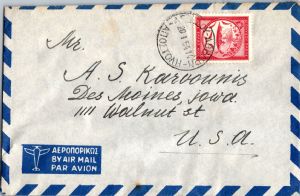 Mr.
A. S. Karvounis
Des Moines, Iowa.
1111 Walnut st
U. S. A.
ΑΕΡΟΠΟΡΙΚΩΣ
BY AIR MAIL
PAR AVION